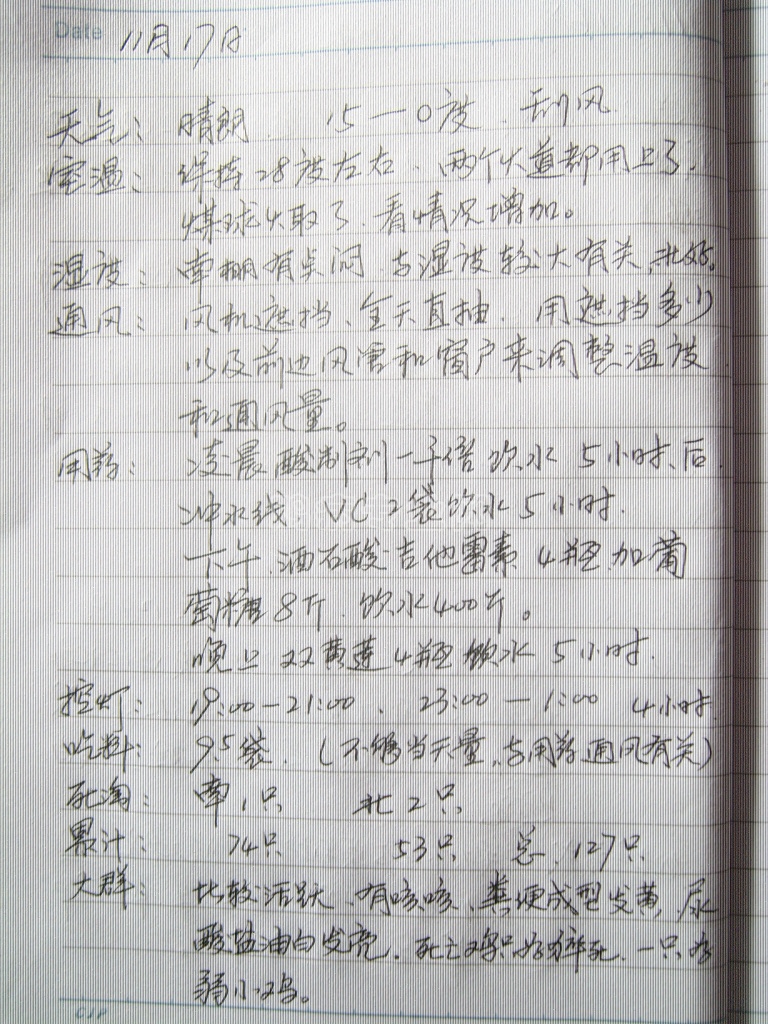 Date 11月17日
天气: 晴朗. 15—0度. 刮风
室温: 保持28度左右、两个火道都用上了,
煤球火取了. 看情况增加。
湿度: 南棚有点闷 与湿度较大有关,北好。
通风: 风机遮挡、全天直抽. 用遮挡多少
以及前边风管和窗户来调整温度
和通风量。
用药: 凌晨酸制剂一千倍饮水5小时后
冲水线 VC2袋饮水5小时.
下午.酒石酸吉他霉素4瓶加葡
萄糖8斤. 饮水400斤。
晚上双黄莲4瓶饮水5小时.
控灯: 19:00—21:00、23:00—1:00 4小时
吃料: 9.5袋. (不够当天量.与用药通风有关)
死淘: 南1只 北2只
累计: 74只 53只 总.127只
大群: 比较活跃、有咳咳、粪便成型发黄,尿
酸盐油白发亮.死亡鸡只为猝死.一只为
弱小鸡。
CIP